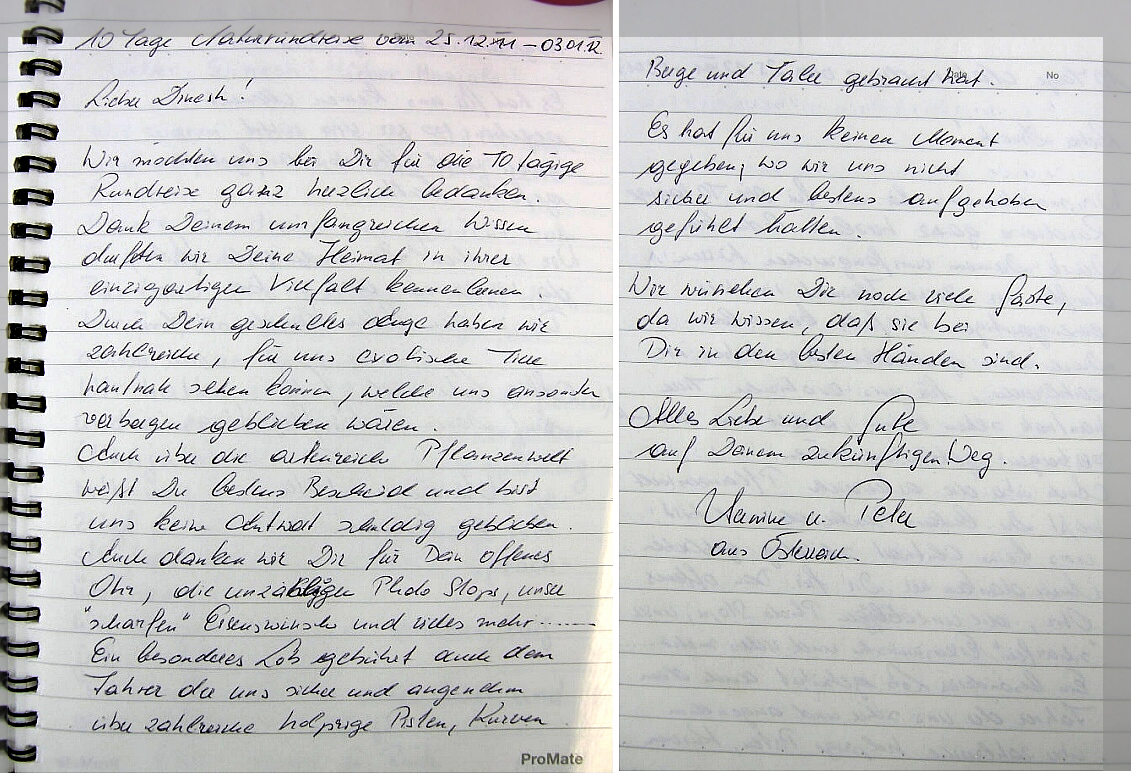 10 Tage Naturrundreise vom 25.12.11 – 03.01.12
Lieber Dinesh!
Wir möchten uns bei Dir für die 10 tägige
Rundreise ganz herzlich bedanken.
Dank Deinem umfangreichen Wissen
durften wir Deine Heimat in ihrer
einzigartigen Vielfalt kennenlernen.
Durch Dein geschultes Auge haben wir
zahlreiche, für uns exotische Tiere
hautnah sehen können, welche uns ansonsten
verborgen geblieben wären.
Auch über die artenreiche Pflanzenwelt
weißt Du bestens Bescheid und bist
uns keine Antwort schuldig geblieben.
Auch danken wir Dir für Dein offenes
Ohr, die unzähligen Photo Stops, unsere
"scharfen" Essenswünsche und vieles mehr......
Ein besonderes Lob gebührt auch dem
Fahrer der uns sicher und angenehm
über zahlreiche holprige Pisten, Kurven
ProMate
No
Berge und Täler gebracht hat.
Es hat für uns keinen Moment
gegeben, wo wir uns nicht
sicher und bestens aufgehoben
gefühlt hätten.
Wir wünschen Dir noch viele Gäste,
da wir wissen, daß sie bei
Dir in den besten Händen sind.
Alles Liebe und Gute
auf Deinem zukünftigen Weg.
u. Peter
aus Österreich.